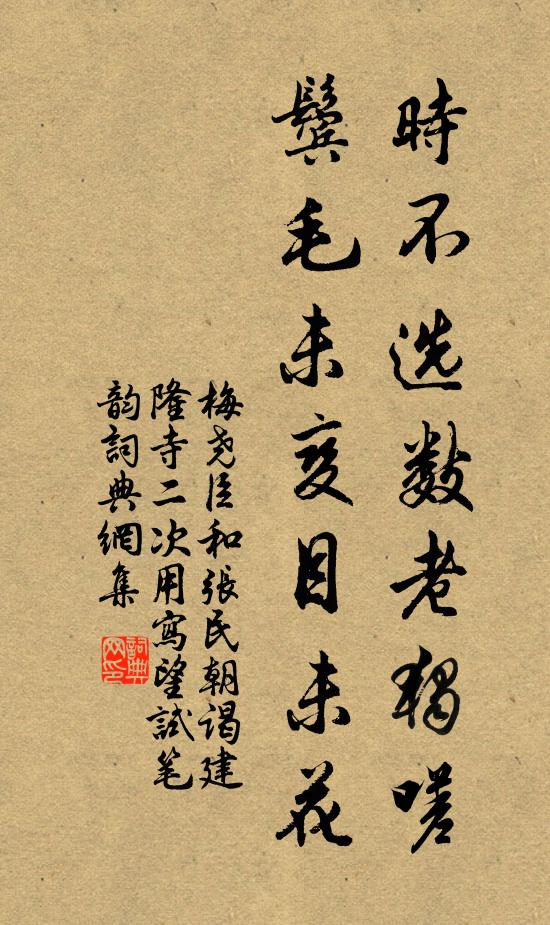 時不選數老獨嗟
鬢毛未變目未花
梅尧臣和張民朝謁建
隆寺二次用寫望試笔
韵詞典網集
詞典
网印